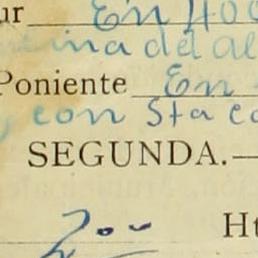 ur En 400
ina del al
Poniente En
y con Sta c
SEGUNDA.—
200 Ht